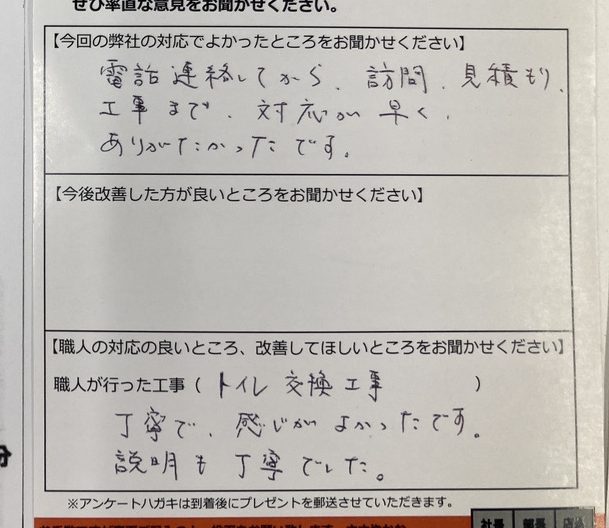 ぜひ率直な意見をお聞かせください。
【今回の弊社の対応でよかったところをお聞かせください】
電話連絡してから、訪問、見積もり、
工事まで、対応が早く、
ありがたかったです。
【今後改善した方が良いところをお聞かせください】
【職人の対応の良いところ、改善してほしいところをお聞かせください】
職人が行った工事（トイレ交換工事）
丁寧で、感じがよかったです。
説明も丁寧でした。
※アンケートハガキは到着後にプレゼントを郵送させていただきます。
分
社長 部長